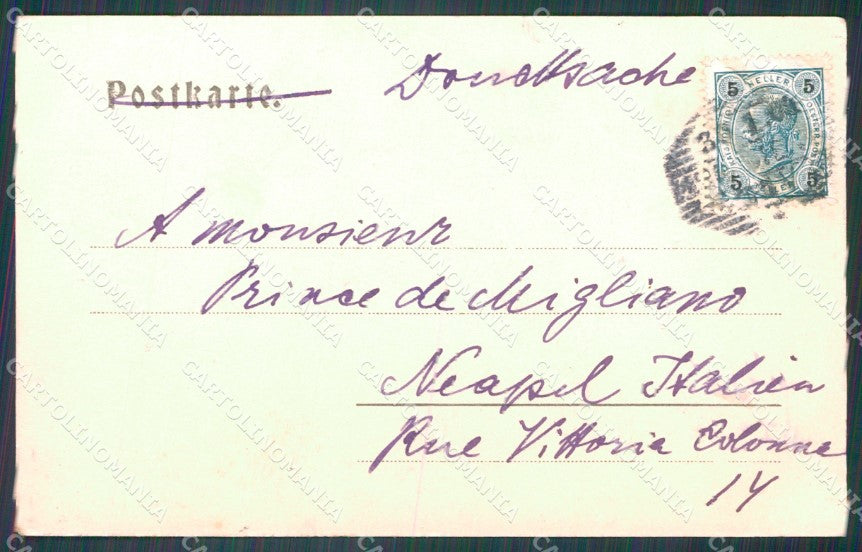 Postkarte.
Doucksache
5 HELLER 5
5 5
A monsieur
Prince de Migliano
Neapel Italien
Rue Vittoria Colonna
14
CARTOLINOMANIA